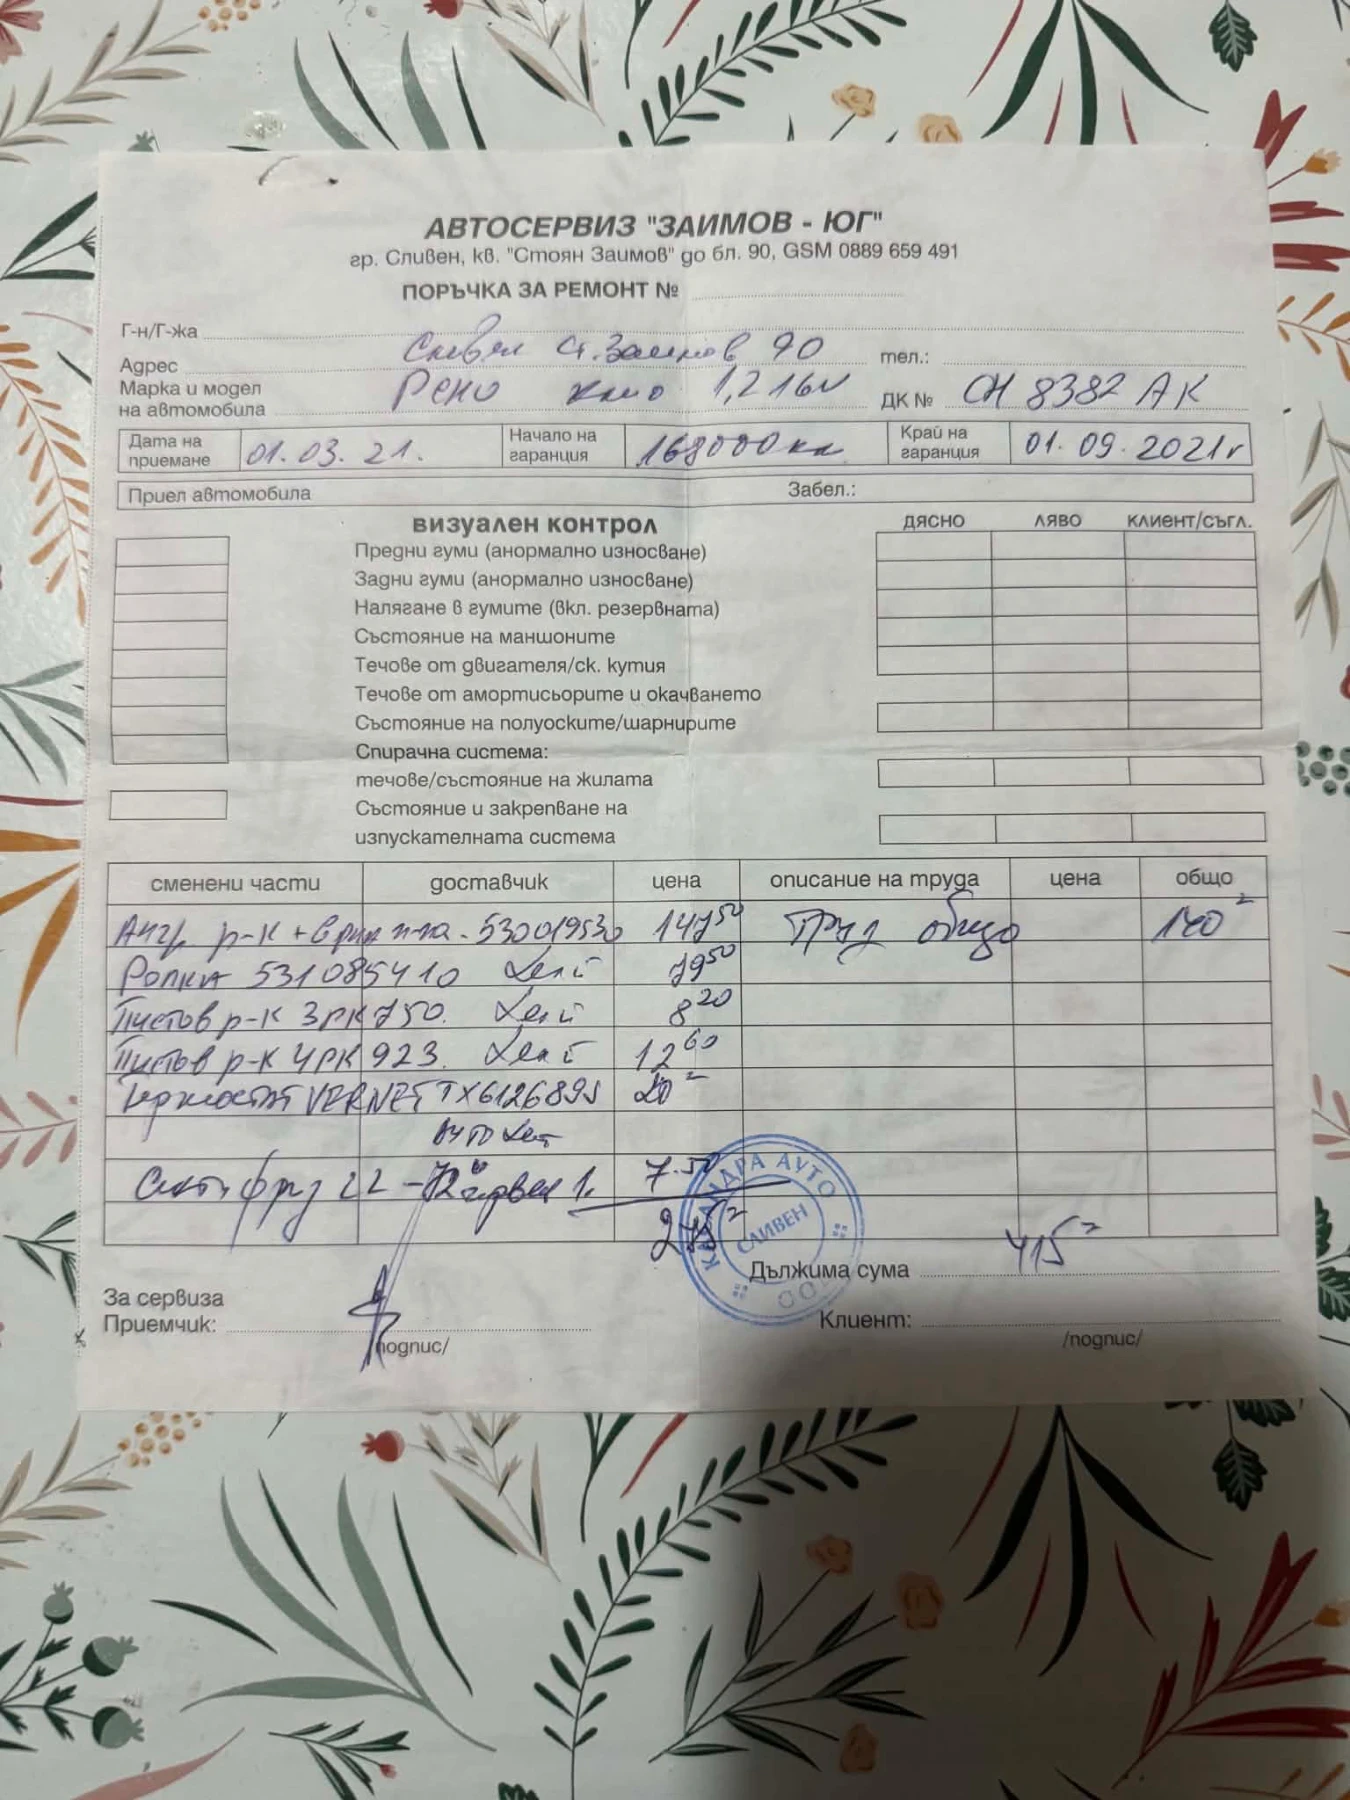 АВТОСЕРВИЗ "ЗАИМОВ - ЮГ"
гр. Сливен, кв. "Стоян Заимов" до бл. 90, GSM 0889 659 491
ПОРЪЧКА ЗА РЕМОНТ №
Г-н/Г-жа
Адрес Сливен Ст. Заимов 90 тел.:
Марка и модел на автомобила Рено клио 1,2 16v ДК № СН 8382 АК
Дата на приемане 01.03.21. Начало на гаранция 168000 км Край на гаранция 01.09.2021г
Приел автомобила Забел.:
визуален контрол ДЯСНО ЛЯВО КЛИЕНТ/СЪГЛ.
Предни гуми (анормално износване)
Задни гуми (анормално износване)
Налягане в гумите (вкл. резервната)
Състояние на маншоните
Течове от двигателя/ск. кутия
Течове от амортисьорите и окачването
Състояние на полуоските/шарнирите
Спирачна система:
течове/състояние на жилата
Състояние и закрепване на
изпускателната система
сменени части доставчик цена описание на труда цена общо
Анг. р-к + 530019530 147 50 Труд общо 140
Ролка 531085410 79 50
Пистов р-к 3PK750. 8 20
Пистов р-к 4PK 923. 12 60
Термостат VERNET TX6126895 20
Ауто
Антифриз 2L - червен 1. 7.50
275
КАЛАНДРА АУТО СЛИВЕН ООД
Дължима сума 415
За сервиза
Приемчик: Клиент:
/подпис/ /подпис/